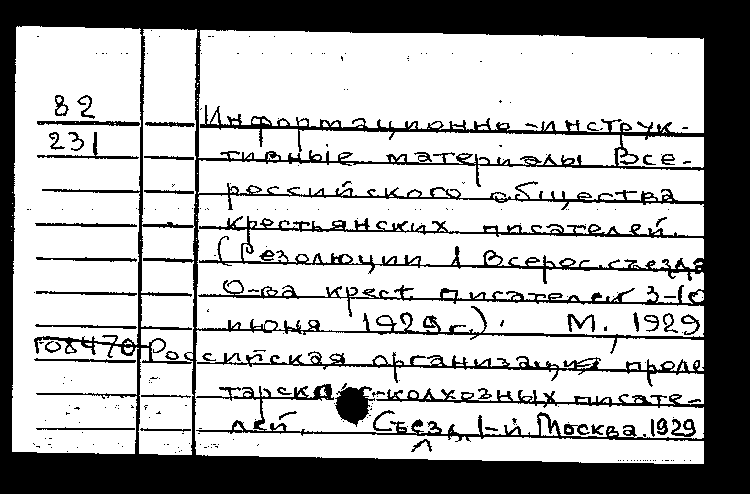 82
231
Информационно-инструк-
тивные материалы Все-
российского общества
крестьянских писателей.
(Резолюции 1 Всерос. съезда
О-ва крест. писателей 3-10
июня 1929 г.). М., 1929
Российская организация проле
тарско-колхозных писате-
лей. Съезд, 1-й. Москва. 1929